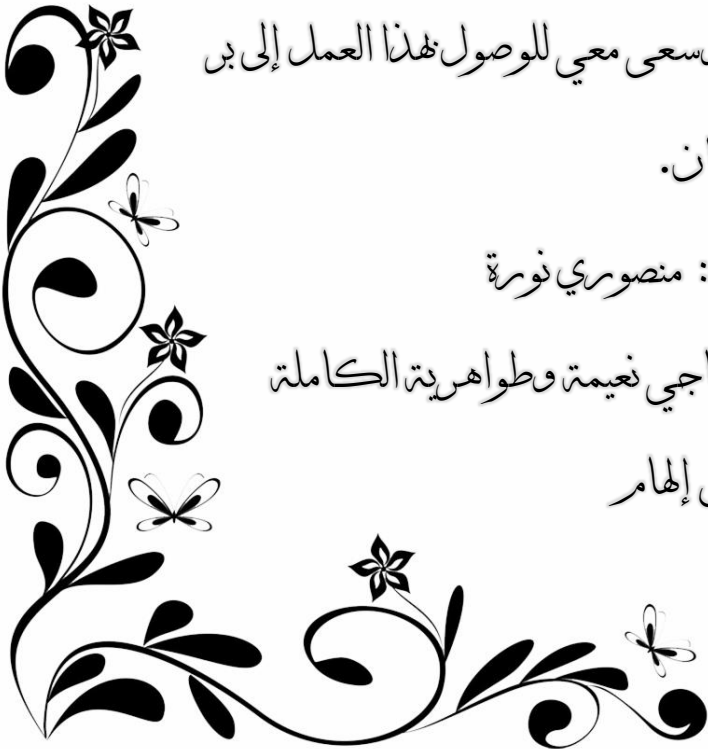 سعى معي للوصول بهذا العمل إلى بر
ان.
: منصوري نورة
اجي نعيمة وطواهرية الكاملة
إلهام